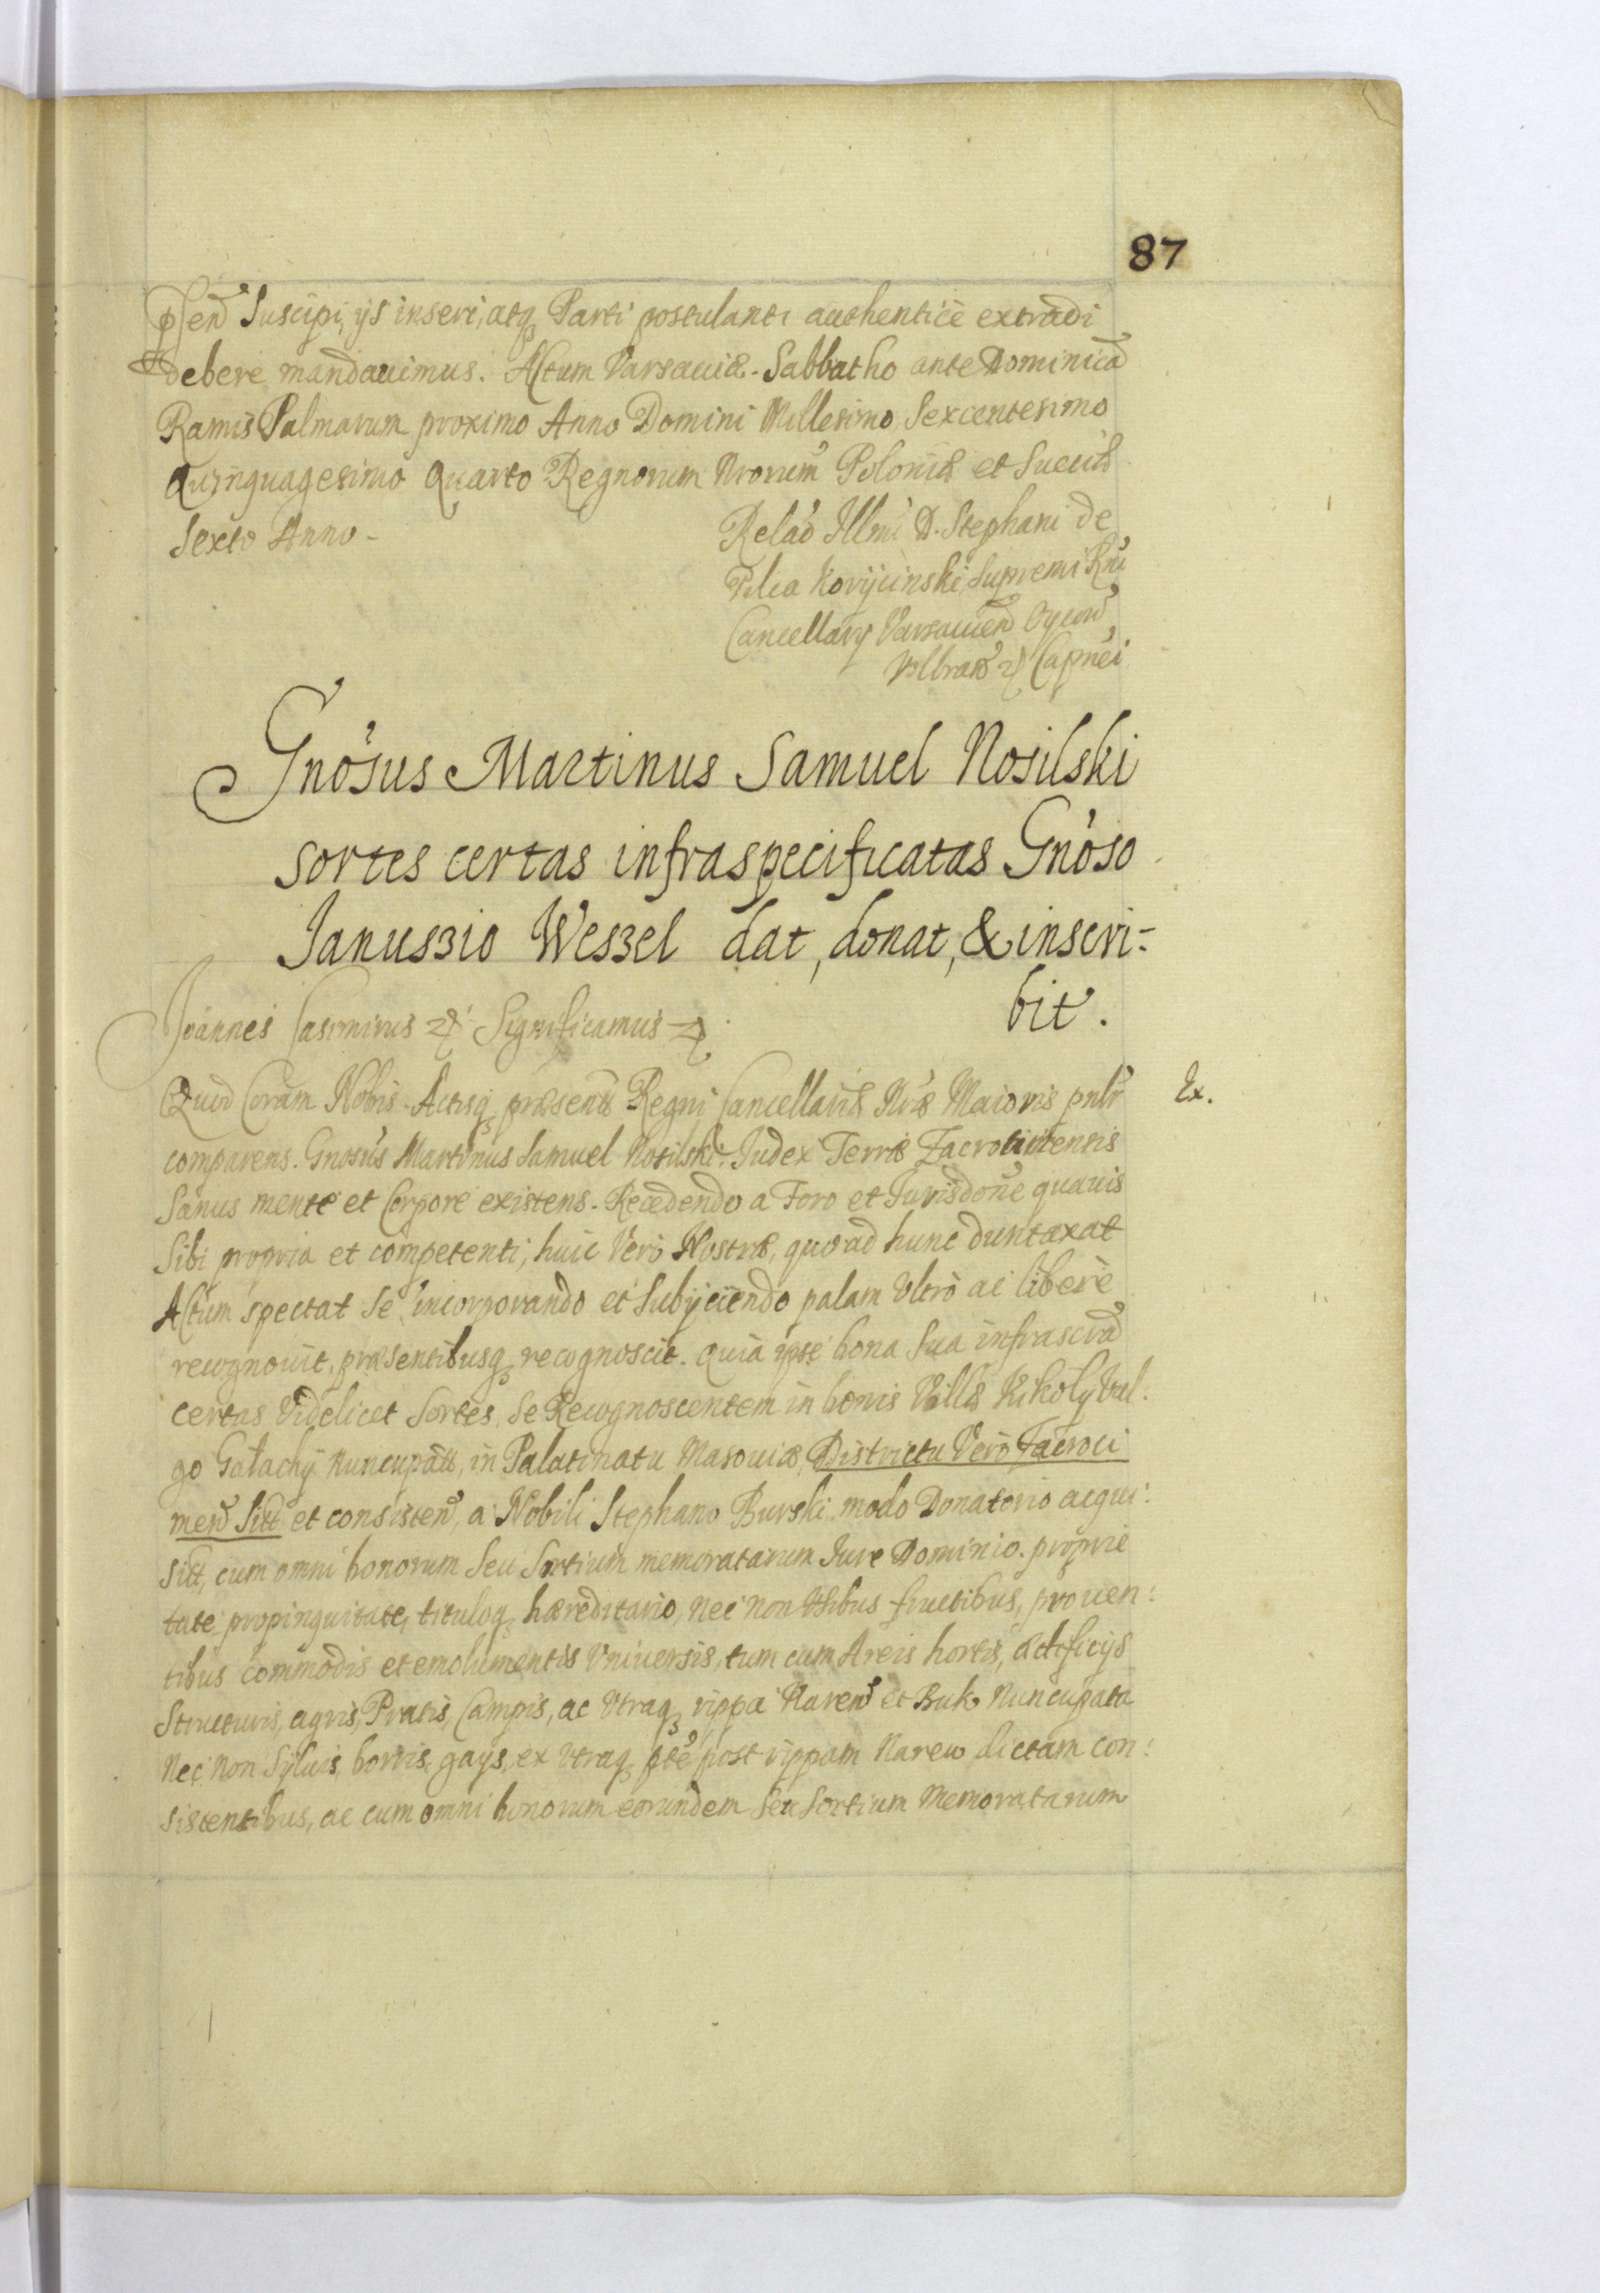 87
pñend Suscipi, ijs inseri, atq Parti postulanti authenticè extradi
debere mandauimus. Actum Varsauiæ. Sabbatho ante Dominicã
Ramis Palmarum proximo Anno Domini Millesimo Sexcentesimo
Quinquagesimo Quarto Regnorum Nrorum Poloniæ et Sueciæ
Sexto Anno.
Relaõ Illmi D. Stephani de
Pilca Korijcinski Supremi Rni
Cancellarij Varsauien Oycow
Wolbram Capnei
Gnosus Martinus Samuel Nosilski
sortes certas infraspecificatas Gnoso
Ianuszio Weszel dat, donat, & inscri-
bit.
Joannes Casimirus Significamus
Ex.
Quod Coram Nobis Actisq præsentt Regni Cancellariæ Nræ Maioris pnlr
comparens. Gnosus Martinus Samuel Nosilski. Judex Terræ Zacrotimensis
Sanus mente et Corpore existens. Recedendo a Foro et Jurisdone quauis
Sibi propria et competenti, huic Verò Nostræ, quoad hunc duntaxat
Actum spectat se incorporando et Subijciendo palam Vltrò ac liberè
recognouit, præsentibusq recognoscit. Quia ipse bona Sua infrascrã
certas Videlicet Sortes, Se Recognoscentem in bonis Villæ Kikoly Vul-
go Gałachÿ Nuncupatt, in Palatinatu Masouiæ, Districtu Verò Zacroci
men Sitt et consisten, a Nobili Stephano Burski modo Donatorio acqui:
sitt, cum omni bonorum Seu Sortium memoratarum Jure Dominio. proprie
tate propinquitate, tituloq hæreditario, Nec non Vsibus fructibus, prouen:
tibus commodis et emolumentis Vniuersis, tum cum Areis hortis, ædificijs
Structuris, agris, Pratis, Campis, ac Vtraq rippa Naren et Buk Nuncupata
Nec non Syluis, borris, gays, ex Vtraq pte post rippam Narew dictam con:
sistentibus, ac cum omni bonorum eorundem Seu Sortium Memoratarum